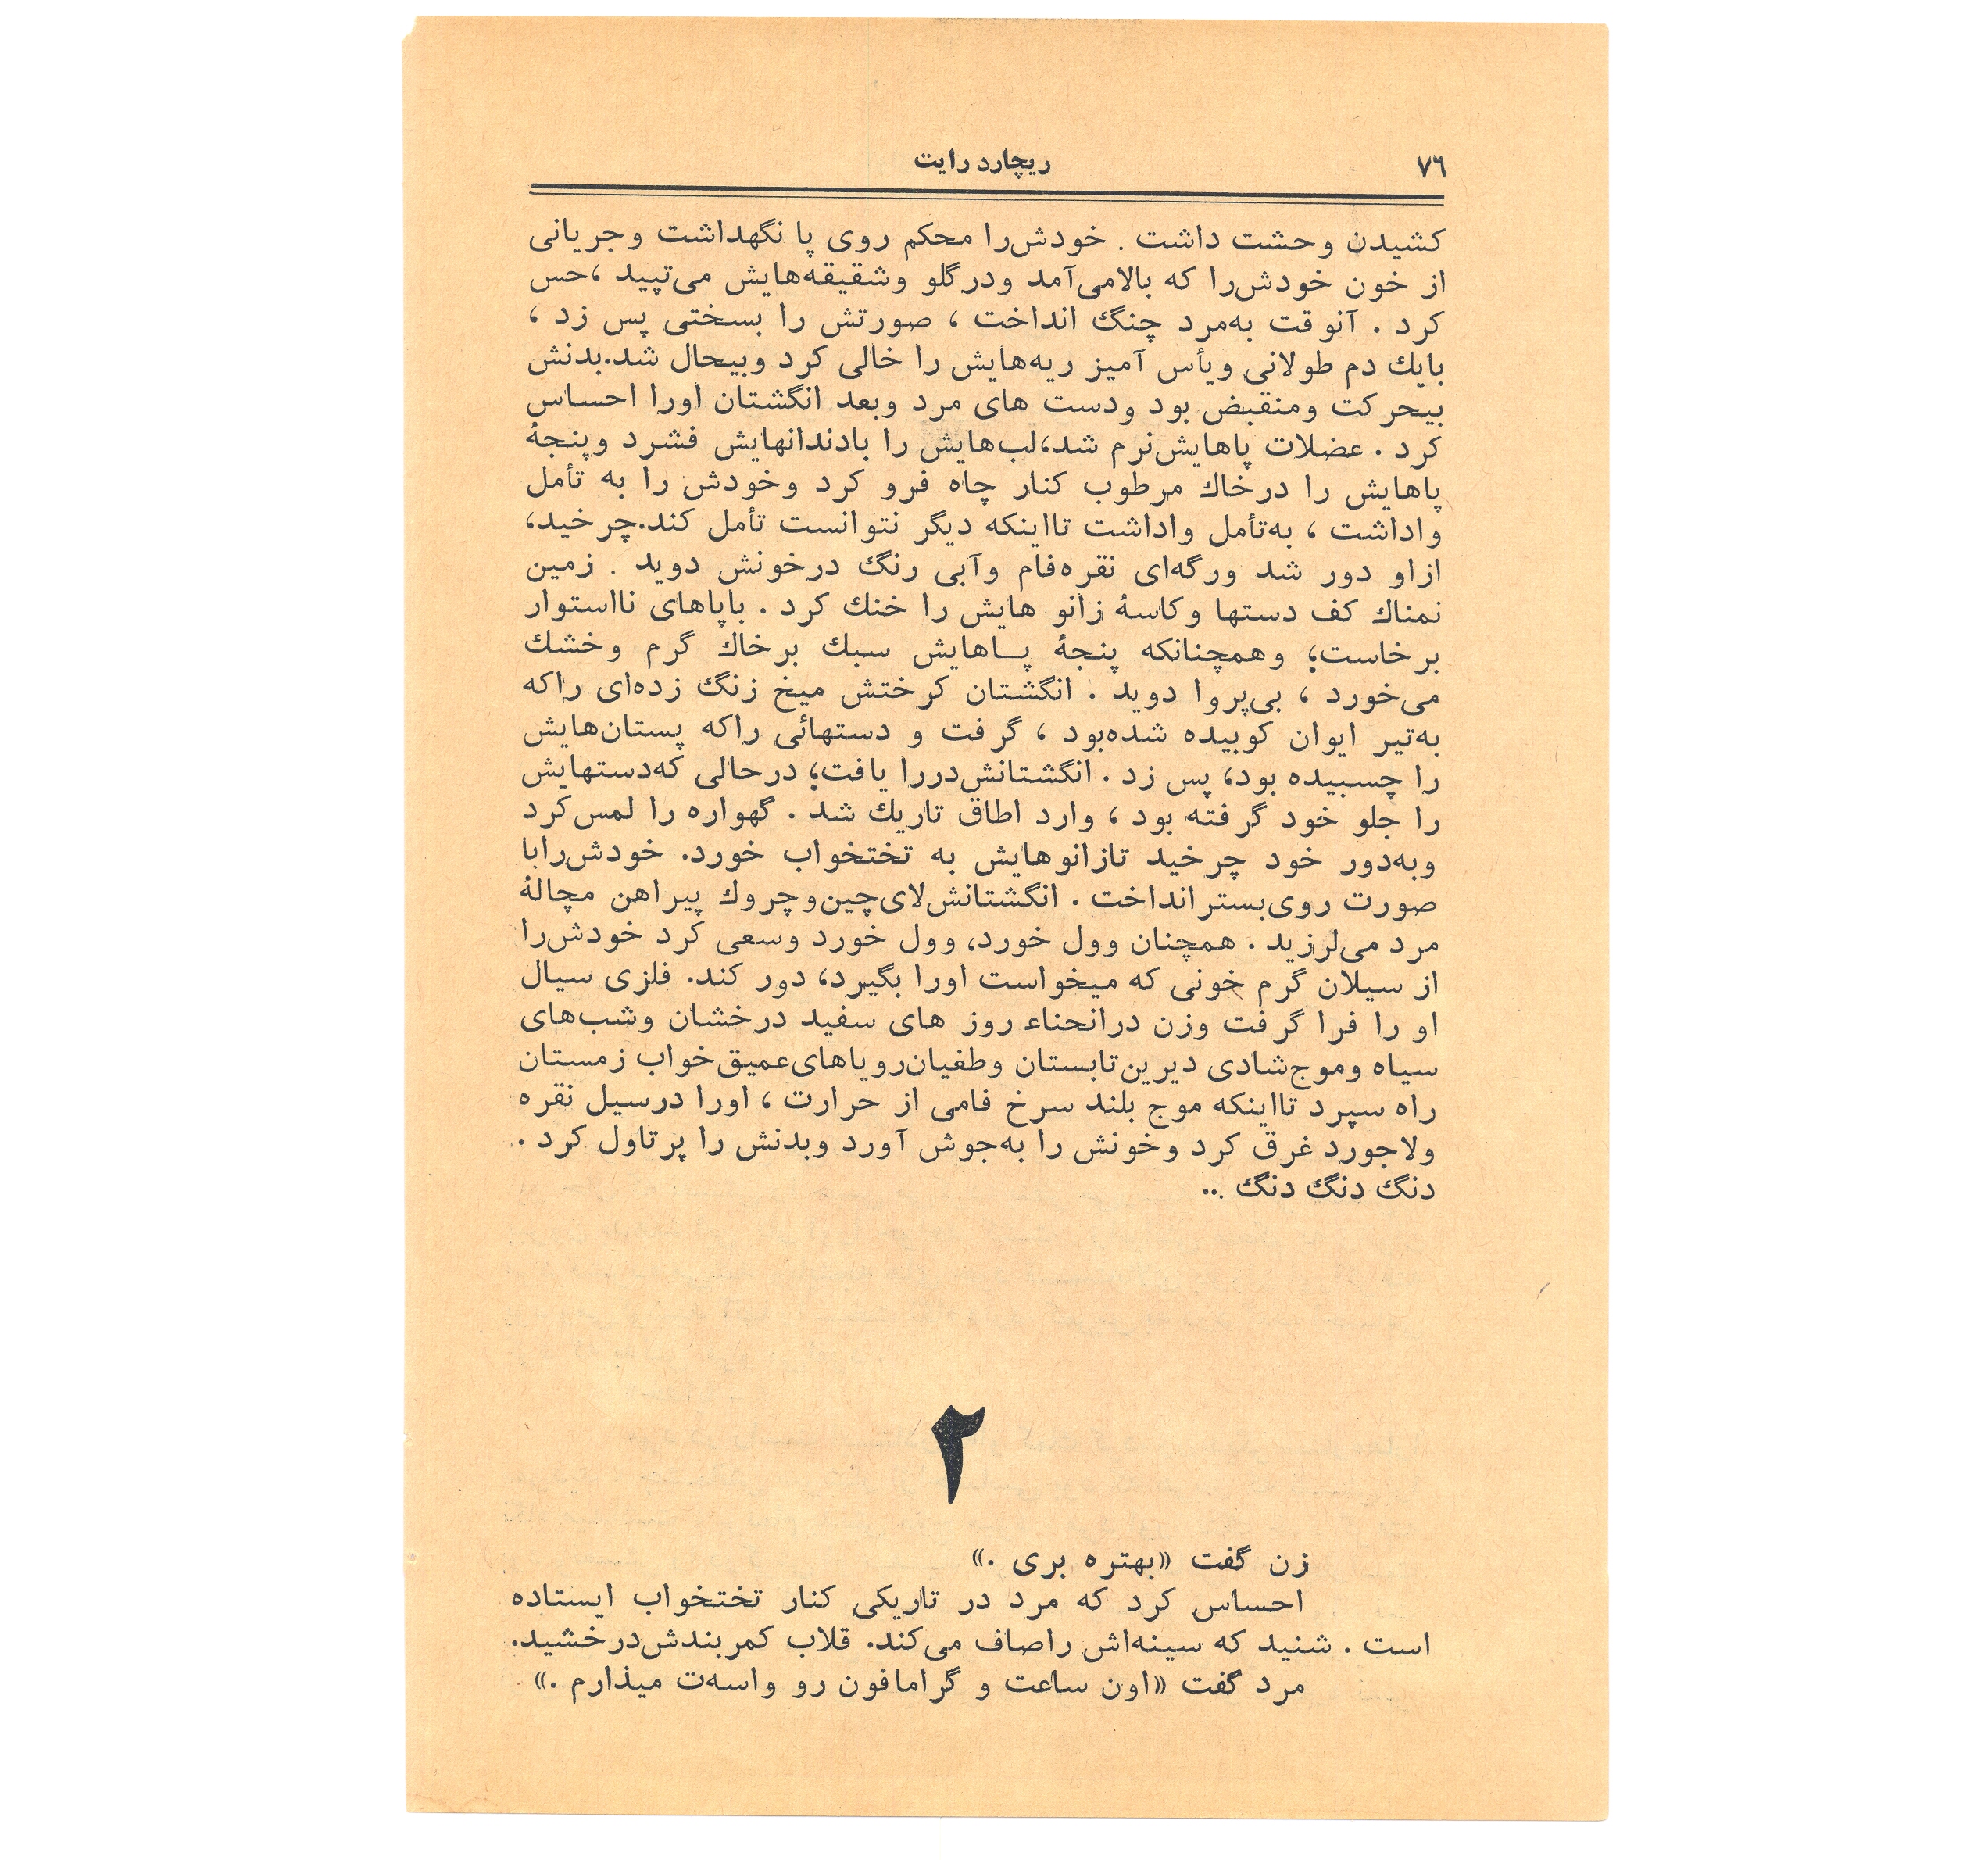 ٧٦
ریچارد رایت
کشیدن وحشت داشت . خودش‌را محکم روی پا نگهداشت وجریانی
از خون خودش‌را که بالامی‌آمد ودرگلو وشقیقه‌هایش می‌تپید ،حس
کرد . آنوقت به‌مرد چنگ انداخت ، صورتش را بسختی پس زد ،
بایك دم طولانی ویأس آمیز ریه‌هایش را خالی کرد وبیحال شد.بدنش
بیحرکت ومنقبض بود ودست های مرد وبعد انگشتان اورا احساس
کرد . عضلات پاهایش‌نرم شد،لب‌هایش را بادندانهایش فشرد وپنجهٔ
پاهایش را درخاك مرطوب کنار چاه فرو کرد وخودش را به تأمل
واداشت ، به‌تأمل واداشت تااینکه دیگر نتوانست تأمل کند.چرخید،
ازاو دور شد ورگه‌ای نقره‌فام وآبی رنگ درخونش دوید . زمین
نمناك کف دستها وکاسهٔ زانو هایش را خنك کرد . باپاهای نااستوار
برخاست؛ وهمچنانکه پنجهٔ پــاهایش سبك برخاك گرم وخشك
می‌خورد ، بی‌پروا دوید . انگشتان کرختش میخ زنگ زده‌ای راکه
به‌تیر ایوان کوبیده شده‌بود ، گرفت و دستهائی راکه پستان‌هایش
را چسبیده بود، پس زد . انگشتانش‌دررا یافت؛ درحالی که‌دستهایش
را جلو خود گرفته بود ، وارد اطاق تاریك شد . گهواره را لمس‌کرد
وبه‌دور خود چرخید تازانوهایش به تختخواب خورد. خودش‌رابا
صورت روی‌بستر‌انداخت . انگشتانش‌لای‌چین‌وچروك پیراهن مچالهٔ
مرد می‌لرزید . همچنان وول خورد، وول خورد وسعی کرد خودش‌را
از سیلان گرم خونی که میخواست اورا بگیرد، دور کند. فلزی سیال
او را فرا گرفت وزن درانحناء روز های سفید درخشان وشب‌های
سیاه وموج‌شادی دیرین‌تابستان وطغیان‌رویاهای‌عمیق‌خواب زمستان
راه سپرد تااینکه موج بلند سرخ فامی از حرارت ، اورا درسیل نقره
ولاجورد غرق کرد وخونش را به‌جوش آورد وبدنش را پرتاول کرد .
دنگ دنگ دنگ ...
۲
زن گفت «بهتره بری .»
احساس کرد که مرد در تاریکی کنار تختخواب ایستاده
است . شنید که سینه‌اش راصاف می‌کند. قلاب کمربندش‌درخشید.
مرد گفت «اون ساعت و گرامافون رو واسه‌ت میذارم .»